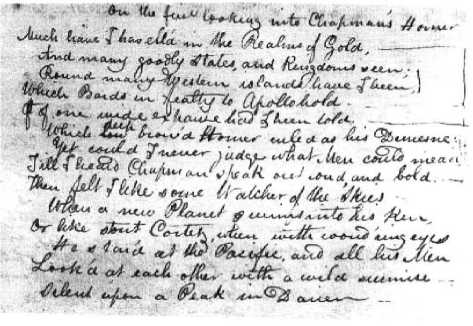 On the first looking into Chapman's Homer
Much have I travell'd in the Realms of Gold,
And many goodly States, and Kingdoms seen;
Round many Western islands have I been,
Which Bards in fealty to Apollo hold.
Of one wide expanse had I been told,
Which deep brow'd Homer ruled as his Demesne:
Yet could I never judge what Men could mean
Till I heard Chapman speak out loud, and bold.
Then felt I like some Watcher of the Skies
When a new Planet swims into his Ken,
Or like stout Cortez, when with wond'ring eyes
He star'd at the Pacific, and all his Men
Look'd at each other with a wild surmise
Silent upon a Peak in Darien